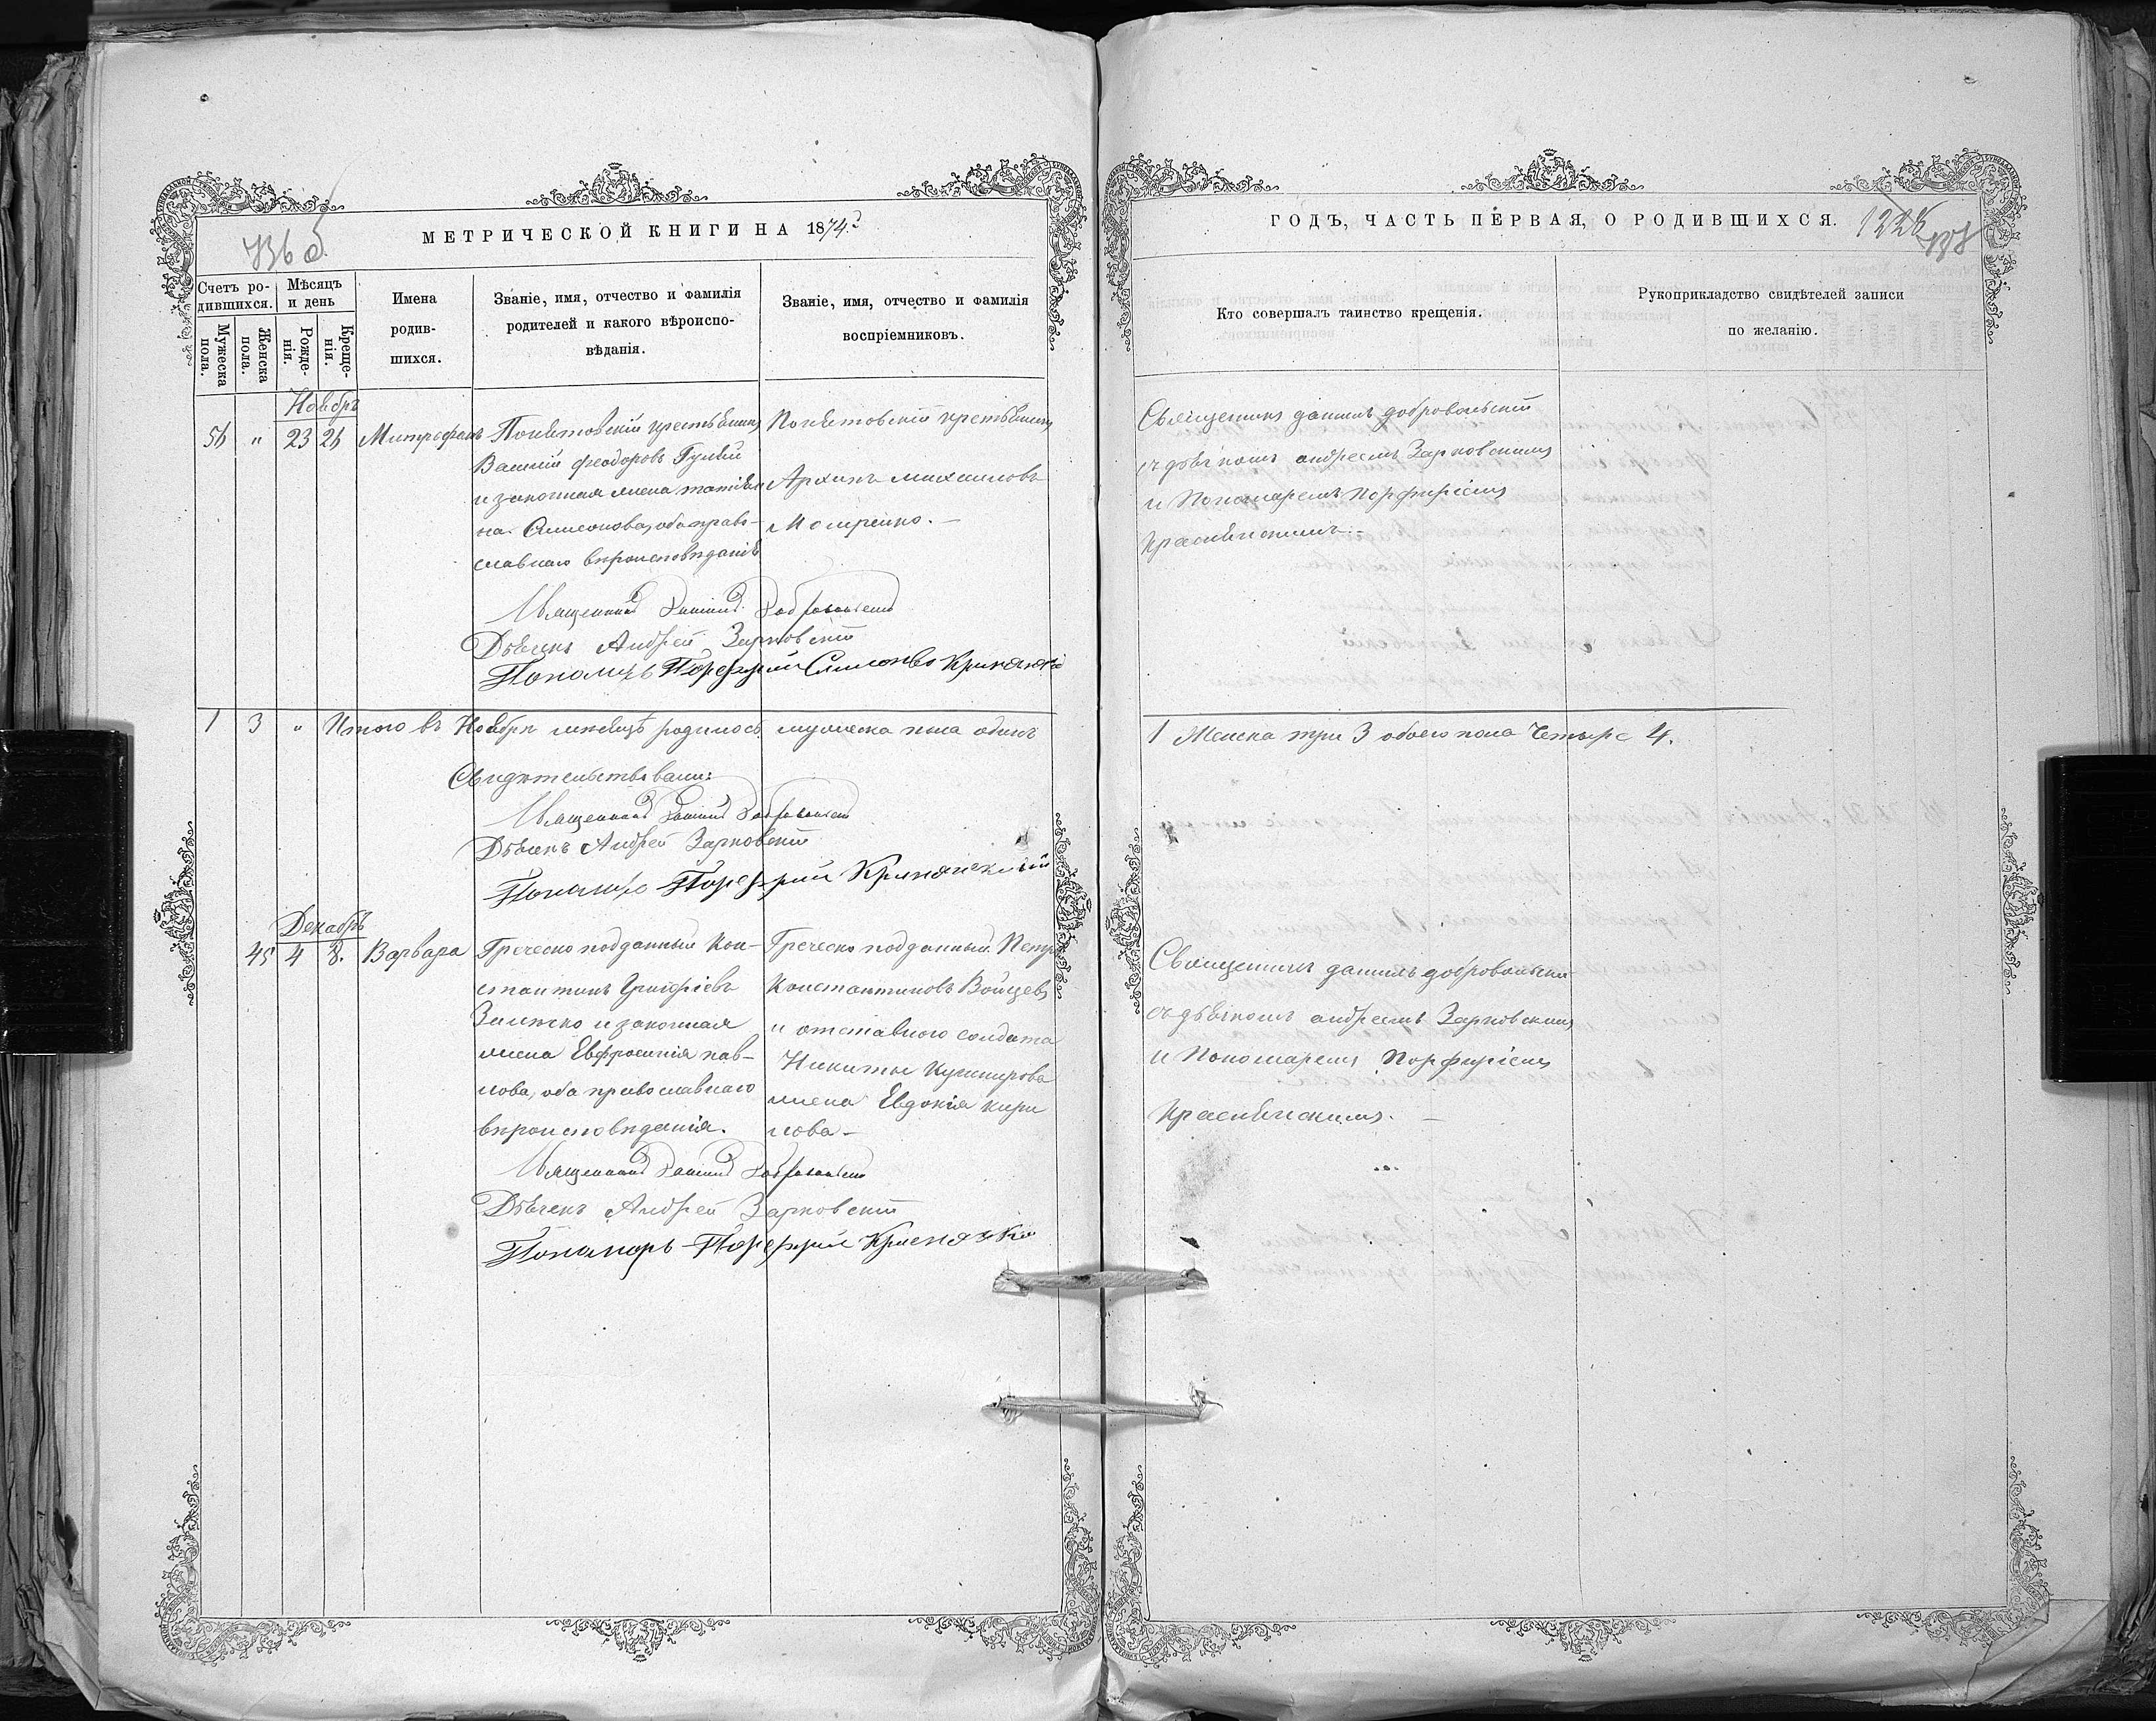 МЕТРИЧЕСКОЙ КНИГИ НА 1874
Счетъ родившихся.
Мужеска пола.
Женска пола.
Мѣсяцъ и день
Рожденія.
Крещенія.
Имена
родив-
шихся.
Званіе, имя, отчество и фамилія
родителей и какого вѣроиспо-
вѣданія.
Званіе, имя, отчество и фамилія
воспріемниковъ.
Ноябрь
56 " 23 26 Митрофанъ
Василій Феодоровъ Гулый
и законная жена Татіа
на Симеонова, оба право-
славнаго вѣроисповѣданія
Архипъ Михаиловъ
Священникъ Даніилъ Добровольскій
Дьячекъ Андрей Зарновскій
Пономарь Порфирій
1 3 " Итого въ Ноябрѣ мѣсяцѣ родилось мужеска пола одинъ
Свидѣтельствовали:
Священникъ Даніилъ Добровольскій
Дьячекъ Андрей Зарновскій
Пономарь Порфирій
Декабрь
45 4 8. Варвара
Греческо подданный Кон-
стантинъ
и законная
жена Евфросинія Пав-
лова, оба православнаго
вѣроисповѣданія.
Греческо подданный Петръ
Константиновъ Войцевъ
и отставного солдата
Никиты Кушнирова
жена Евдокія Кири
лова —
Священникъ Даніилъ Добровольскій
Дьячекъ Андрей Зарновскій
Пономарь Порфирій
ГОДЪ, ЧАСТЬ ПЕРВАЯ, О РОДИВШИХСЯ.
Кто совершалъ таинство крещенія.
Рукоприкладство свидѣтелей записи
по желанію.
Священникъ Даніилъ Добровольскій
съ дьячкомъ Андреемъ Зарновскимъ
и Пономаремъ Порфиріемъ
1 Женска три 3 обоего пола Четыре 4.
Священникъ Даніилъ Добровольскій
съ дьячкомъ Андреемъ Зарновскимъ
и Пономаремъ Порфиріемъ